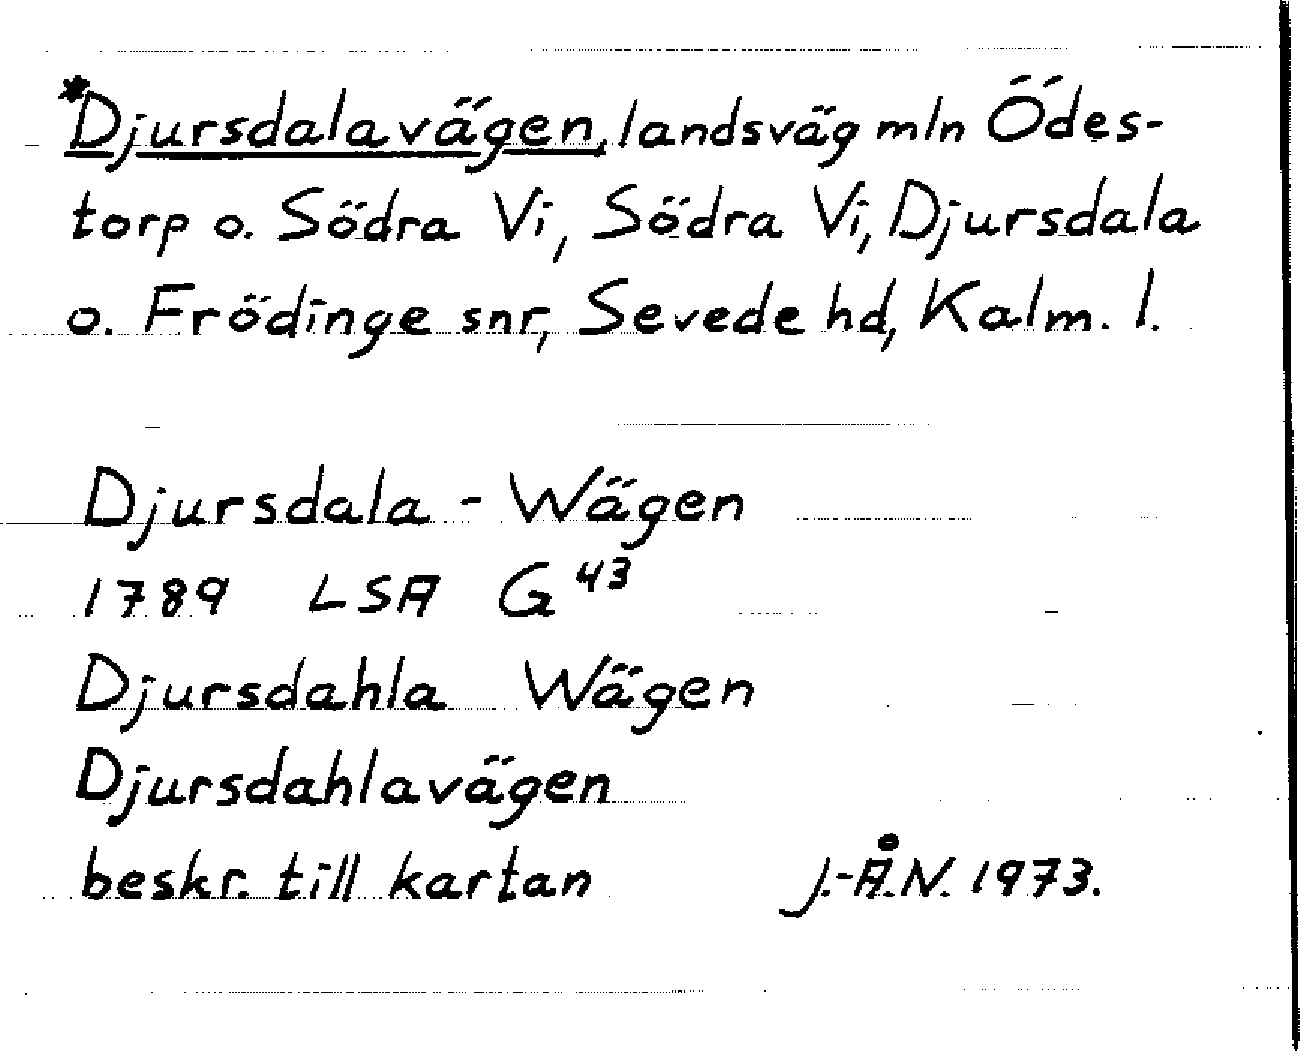 *Djursdalavägen, landsväg mln Ödes-
torp o. Södra Vi, Södra Vi, Djursdala
o. Frödinge snr, Sevede hd, Kalm. l.
Djursdala - Wägen
1789 LSA G 43
Djursdahla Wägen
Djursdahlavägen
beskr. till kartan J.-Å.N. 1973.